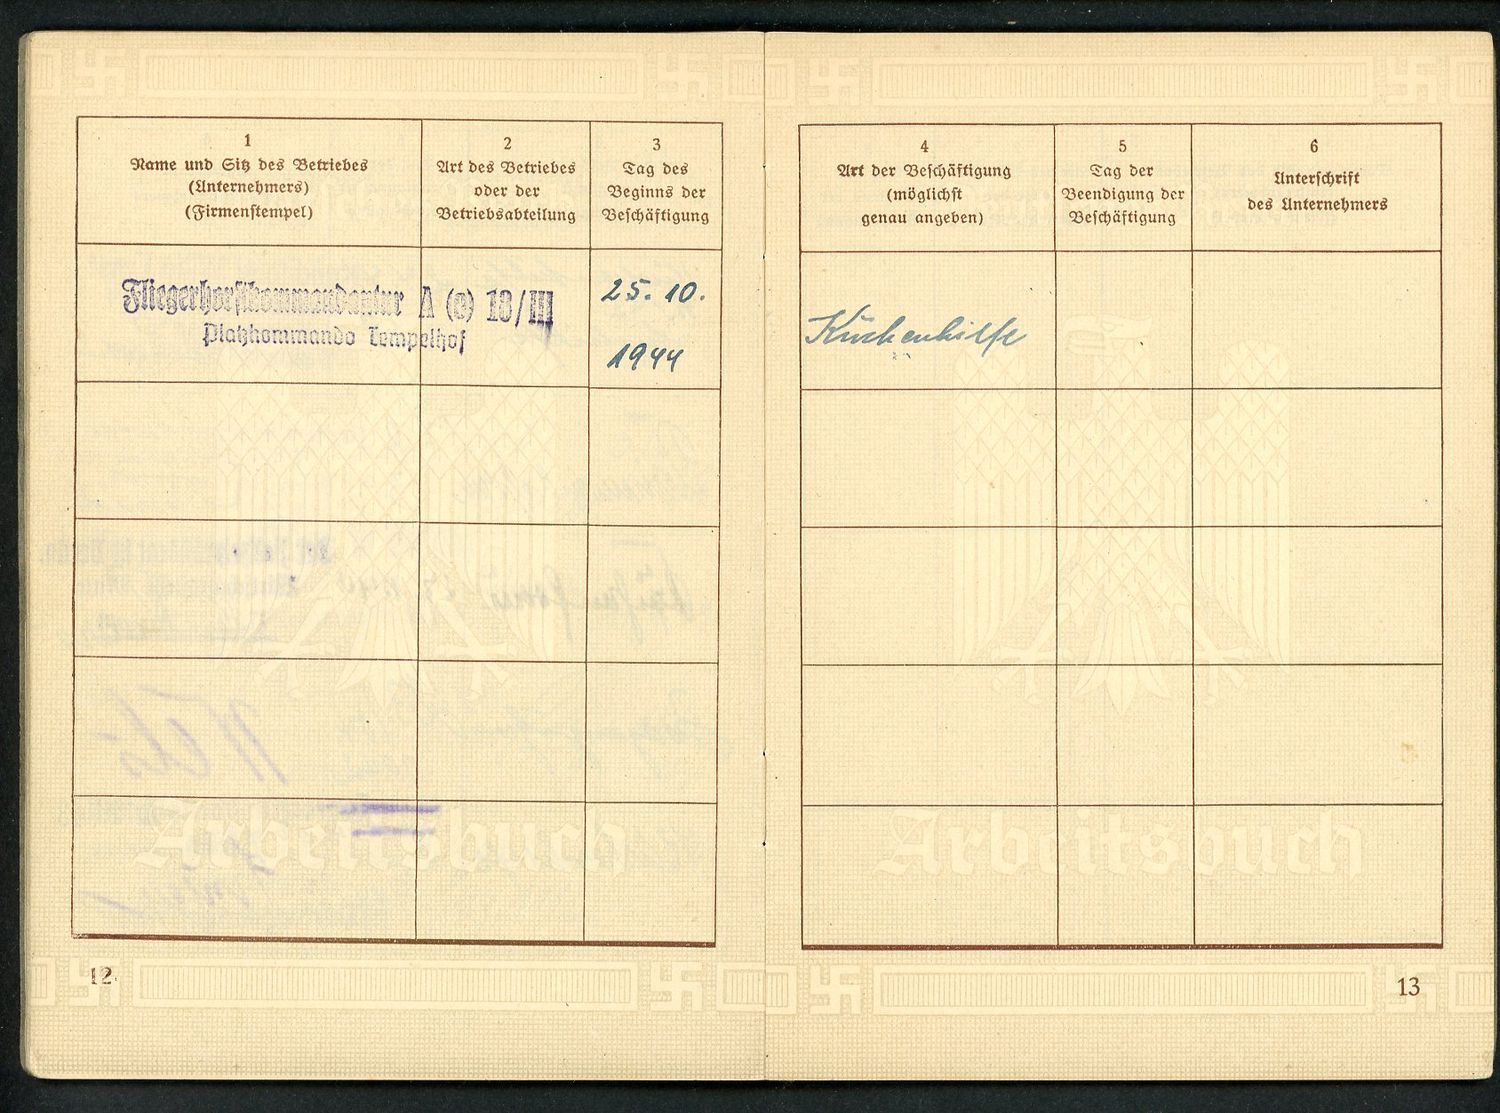 1
Name und Sitz des Betriebes
(Unternehmers)
(Firmenstempel)
2
Art des Betriebes
oder der
Betriebsabteilung
3
Tag des
Beginns der
Beschäftigung
Fliegerhorstkommandantur A (o) 18/III
Platzkommando Tempelhof
25. 10.
1944
Arbeitsbuch
12
4
Art der Beschäftigung
(möglichst
genau angeben)
5
Tag der
Beendigung der
Beschäftigung
6
Unterschrift
des Unternehmers
Küchenhilfe
Arbeitsbuch
13